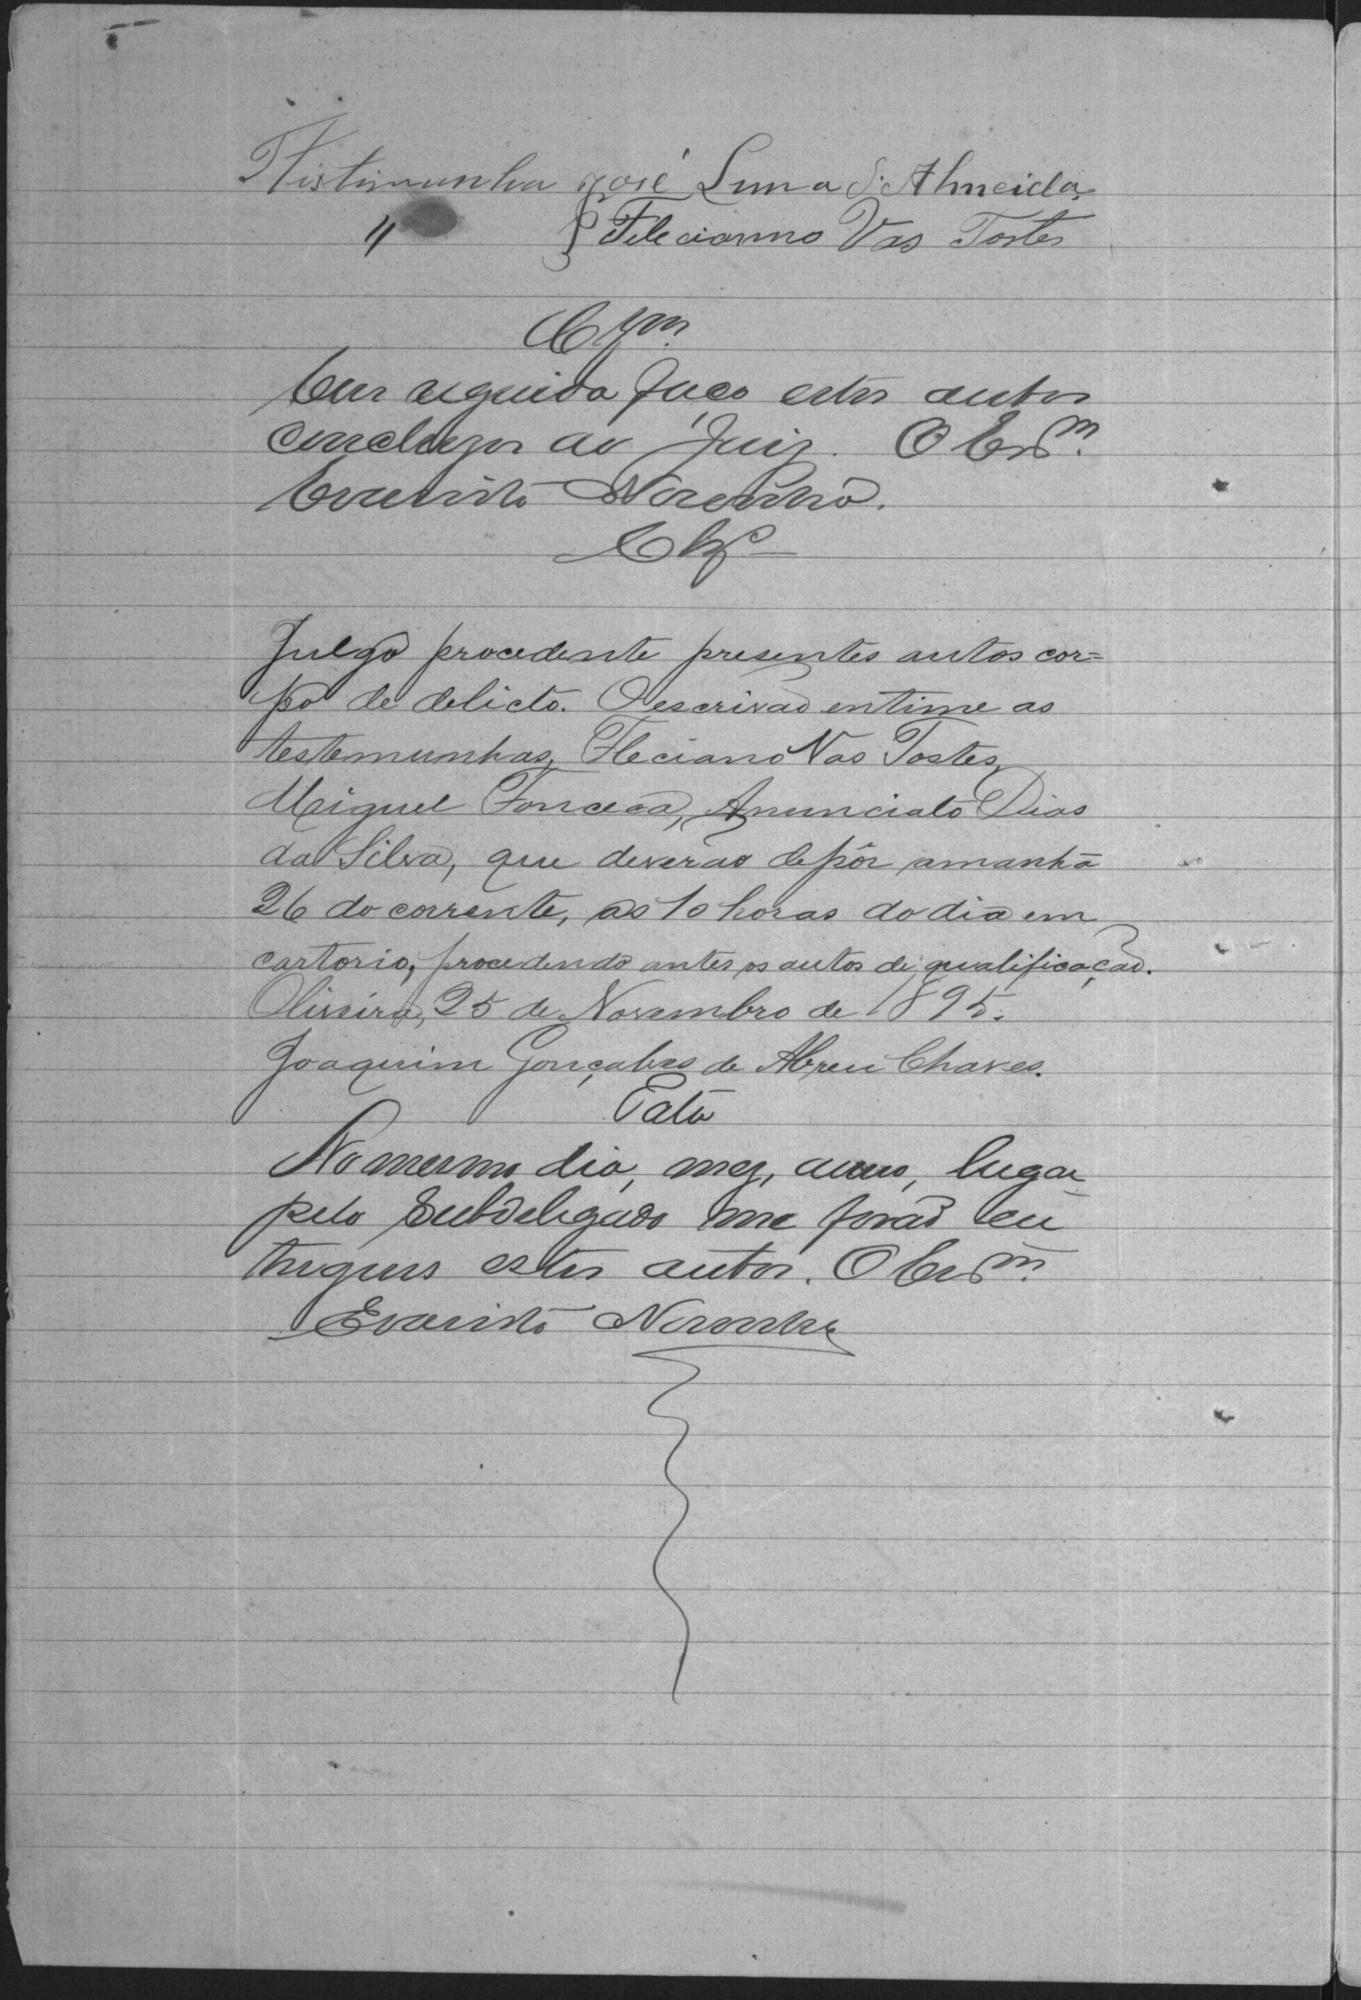 Tistimunha José Luna d'Almeida
" Feleciano Vas Tostes
Clzm
Em seguida faço estes autos
conclusos ao Juiz. O Escrm.
Evaristo Noronha.
Clzo
Julgo procedente presentes autos cor=
po de delicto. O escrivão entime as
testemunhas, Fleciano Vas Tostes,
Miguel Fonceca, Anunciato Dias
da Silva, que deverão depôr amanhã
26 do corrente, as 10 horas do dia em
cartorio, procedendo antes os autos de qualificação.
Oliveira, 25 de Novembro de 1895.
Joaquim Gonçalves de Abreu Chaves.
Data
No mesmo dia, mez, anno, lugar
pelo Subdelegado me forão en
tregues estes autos. O Escrm.
Evaristo Noronha